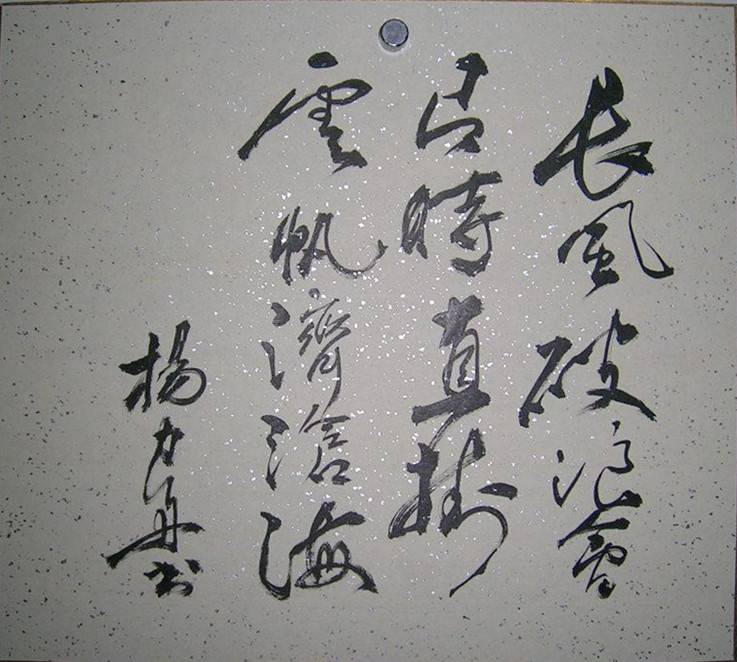 長風破浪會
有時直掛
雲帆濟滄海
楊力舟书